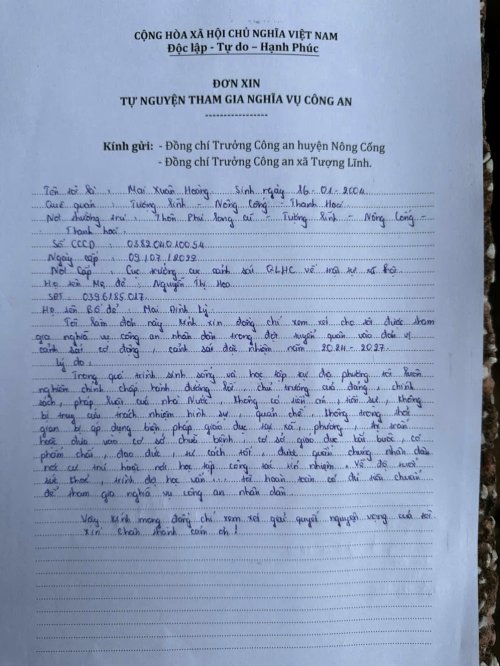 CỘNG HÒA XÃ HỘI CHỦ NGHĨA VIỆT NAM
Độc lập - Tự do – Hạnh Phúc
ĐƠN XIN
TỰ NGUYỆN THAM GIA NGHĨA VỤ CÔNG AN
Kính gửi: - Đồng chí Trưởng Công an huyện Nông Cống
- Đồng chí Trưởng Công an xã Tượng Lĩnh.
Tên tôi là : Mai Xuân Hoàng Sinh ngày 16-01-2004
Quê quán : Tượng Lĩnh - Nông Cống - Thanh Hoá
Nơi thường trú : Thôn Phú Long - Tượng Lĩnh - Nông Cống -
Thanh hoá.
Số CCCD : 038204010054
Ngày cấp : 09/07/2022
Nơi Cấp : Cục trưởng cục cảnh sát QLHC về trật tự xã hội
Họ tên Mẹ đẻ : Nguyễn Thị Hoa
SĐT : 0396185017
Họ tên Bố đẻ : Mai Đình Lý
Tôi làm đơn này kính xin đồng chí xem xét cho tôi được tham
gia nghĩa vụ công an nhân dân trong đợt tuyển quân vào đơn vị
cảnh sát cơ động, cảnh sát đặc nhiệm năm 2024-2027.
Lý do :
Trong quá trình sinh sống và học tập tại địa phương tôi luôn
nghiêm chỉnh chấp hành đường lối, chủ trương của đảng, chính
sách, pháp luật của nhà Nước. Không có tiền án, tiền sự, không
bị truy cứu trách nhiệm hình sự, quản chế, không trong thời
gian bị áp dụng biện pháp giáo dục tại xã, phường, thị trấn
hoặc đưa vào cơ sở chữa bệnh, cơ sở giáo dục bắt buộc, có
phẩm chất, đạo đức, tư cách tốt, được quần chúng nhân dân
nơi cư trú hoặc nơi học tập công tác tín nhiệm. Về độ tuổi
sức khoẻ, trình độ học vấn... tôi hoàn toàn có đủ tiêu chuẩn
để tham gia nghĩa vụ công an nhân dân
Vậy kính mong đồng chí xem xét giải quyết nguyện vọng của tôi
Xin chân thành cảm ơn !